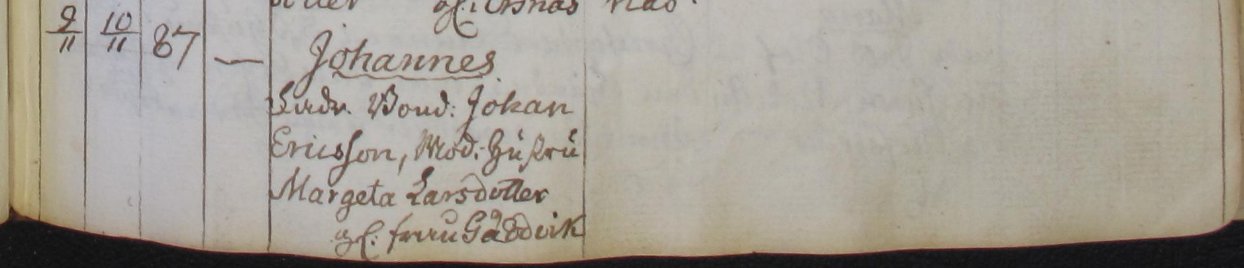 9/11 10/11 87 — Johannes
Fadr. Bond: Johan
Ericsson, Mod: Hustru
Margeta Larsdotter
ifr. frau Gåsvik